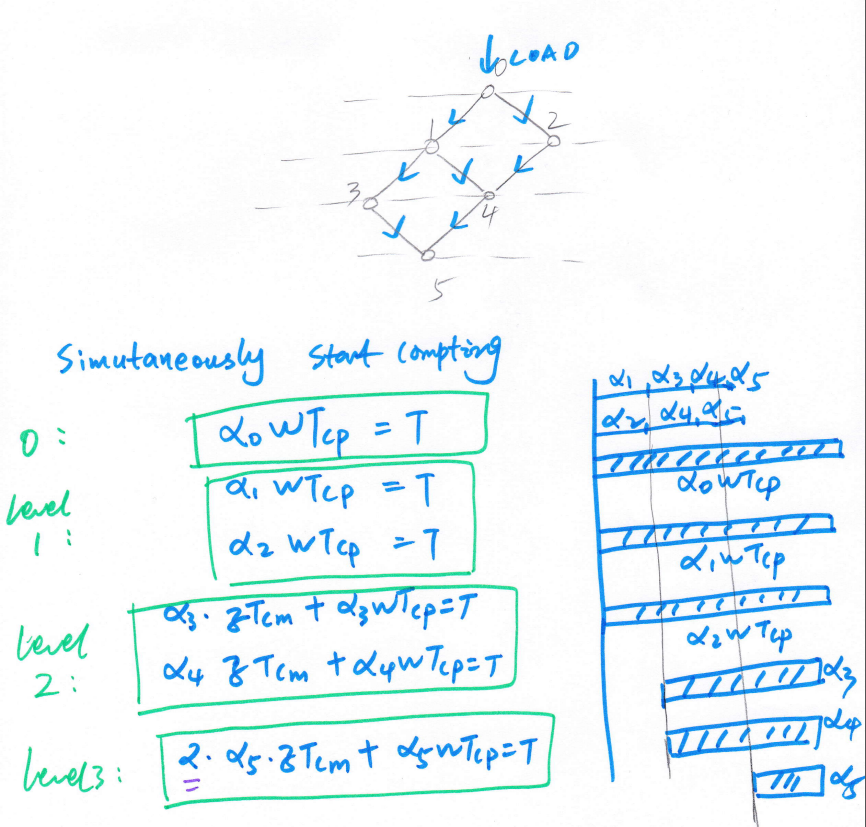 LOAD
0
1
2
3
4
5
Simutaneously start compting
0 :
α₀ wTcp = T
level 1 :
α₁ wTcp = T
α₂ wTcp = T
level 2 :
α₃ · zTcm + α₃wTcp=T
α₄ zTcm + α₄wTcp=T
level3 :
2 · α₅ · zTcm + α₅wTcp=T
α₁ α₃ α₄ α₅
α₂ α₄ α₅
α₀wTcp
α₁wTcp
α₂wTcp
α₃
α₄
α₅